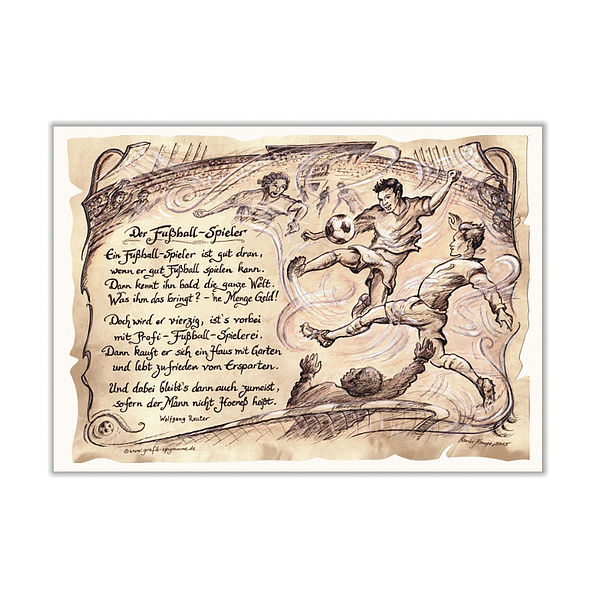 Der Fußball-Spieler
Ein Fußball-Spieler ist gut dran,
wenn er gut Fußball spielen kann.
Dann kennt ihn bald die ganze Welt.
Was ihm das bringt? - 'ne Menge Geld!
Doch wird er vierzig, ist's vorbei
mit Profi-Fußball-Spielerei.
Dann kauft er sich ein Haus mit Garten
und lebt zufrieden vom Ersparten.
Und dabei bleibt's dann auch zumeist,
sofern der Mann nicht Hoeneß heißt.
Wolfgang Reuter
©www.grafik-epigramme.de